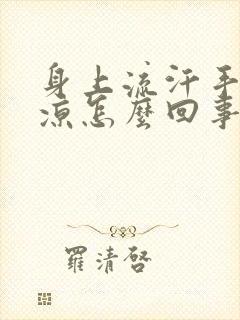 身上流汗手
凉怎麼回事
羅清啓